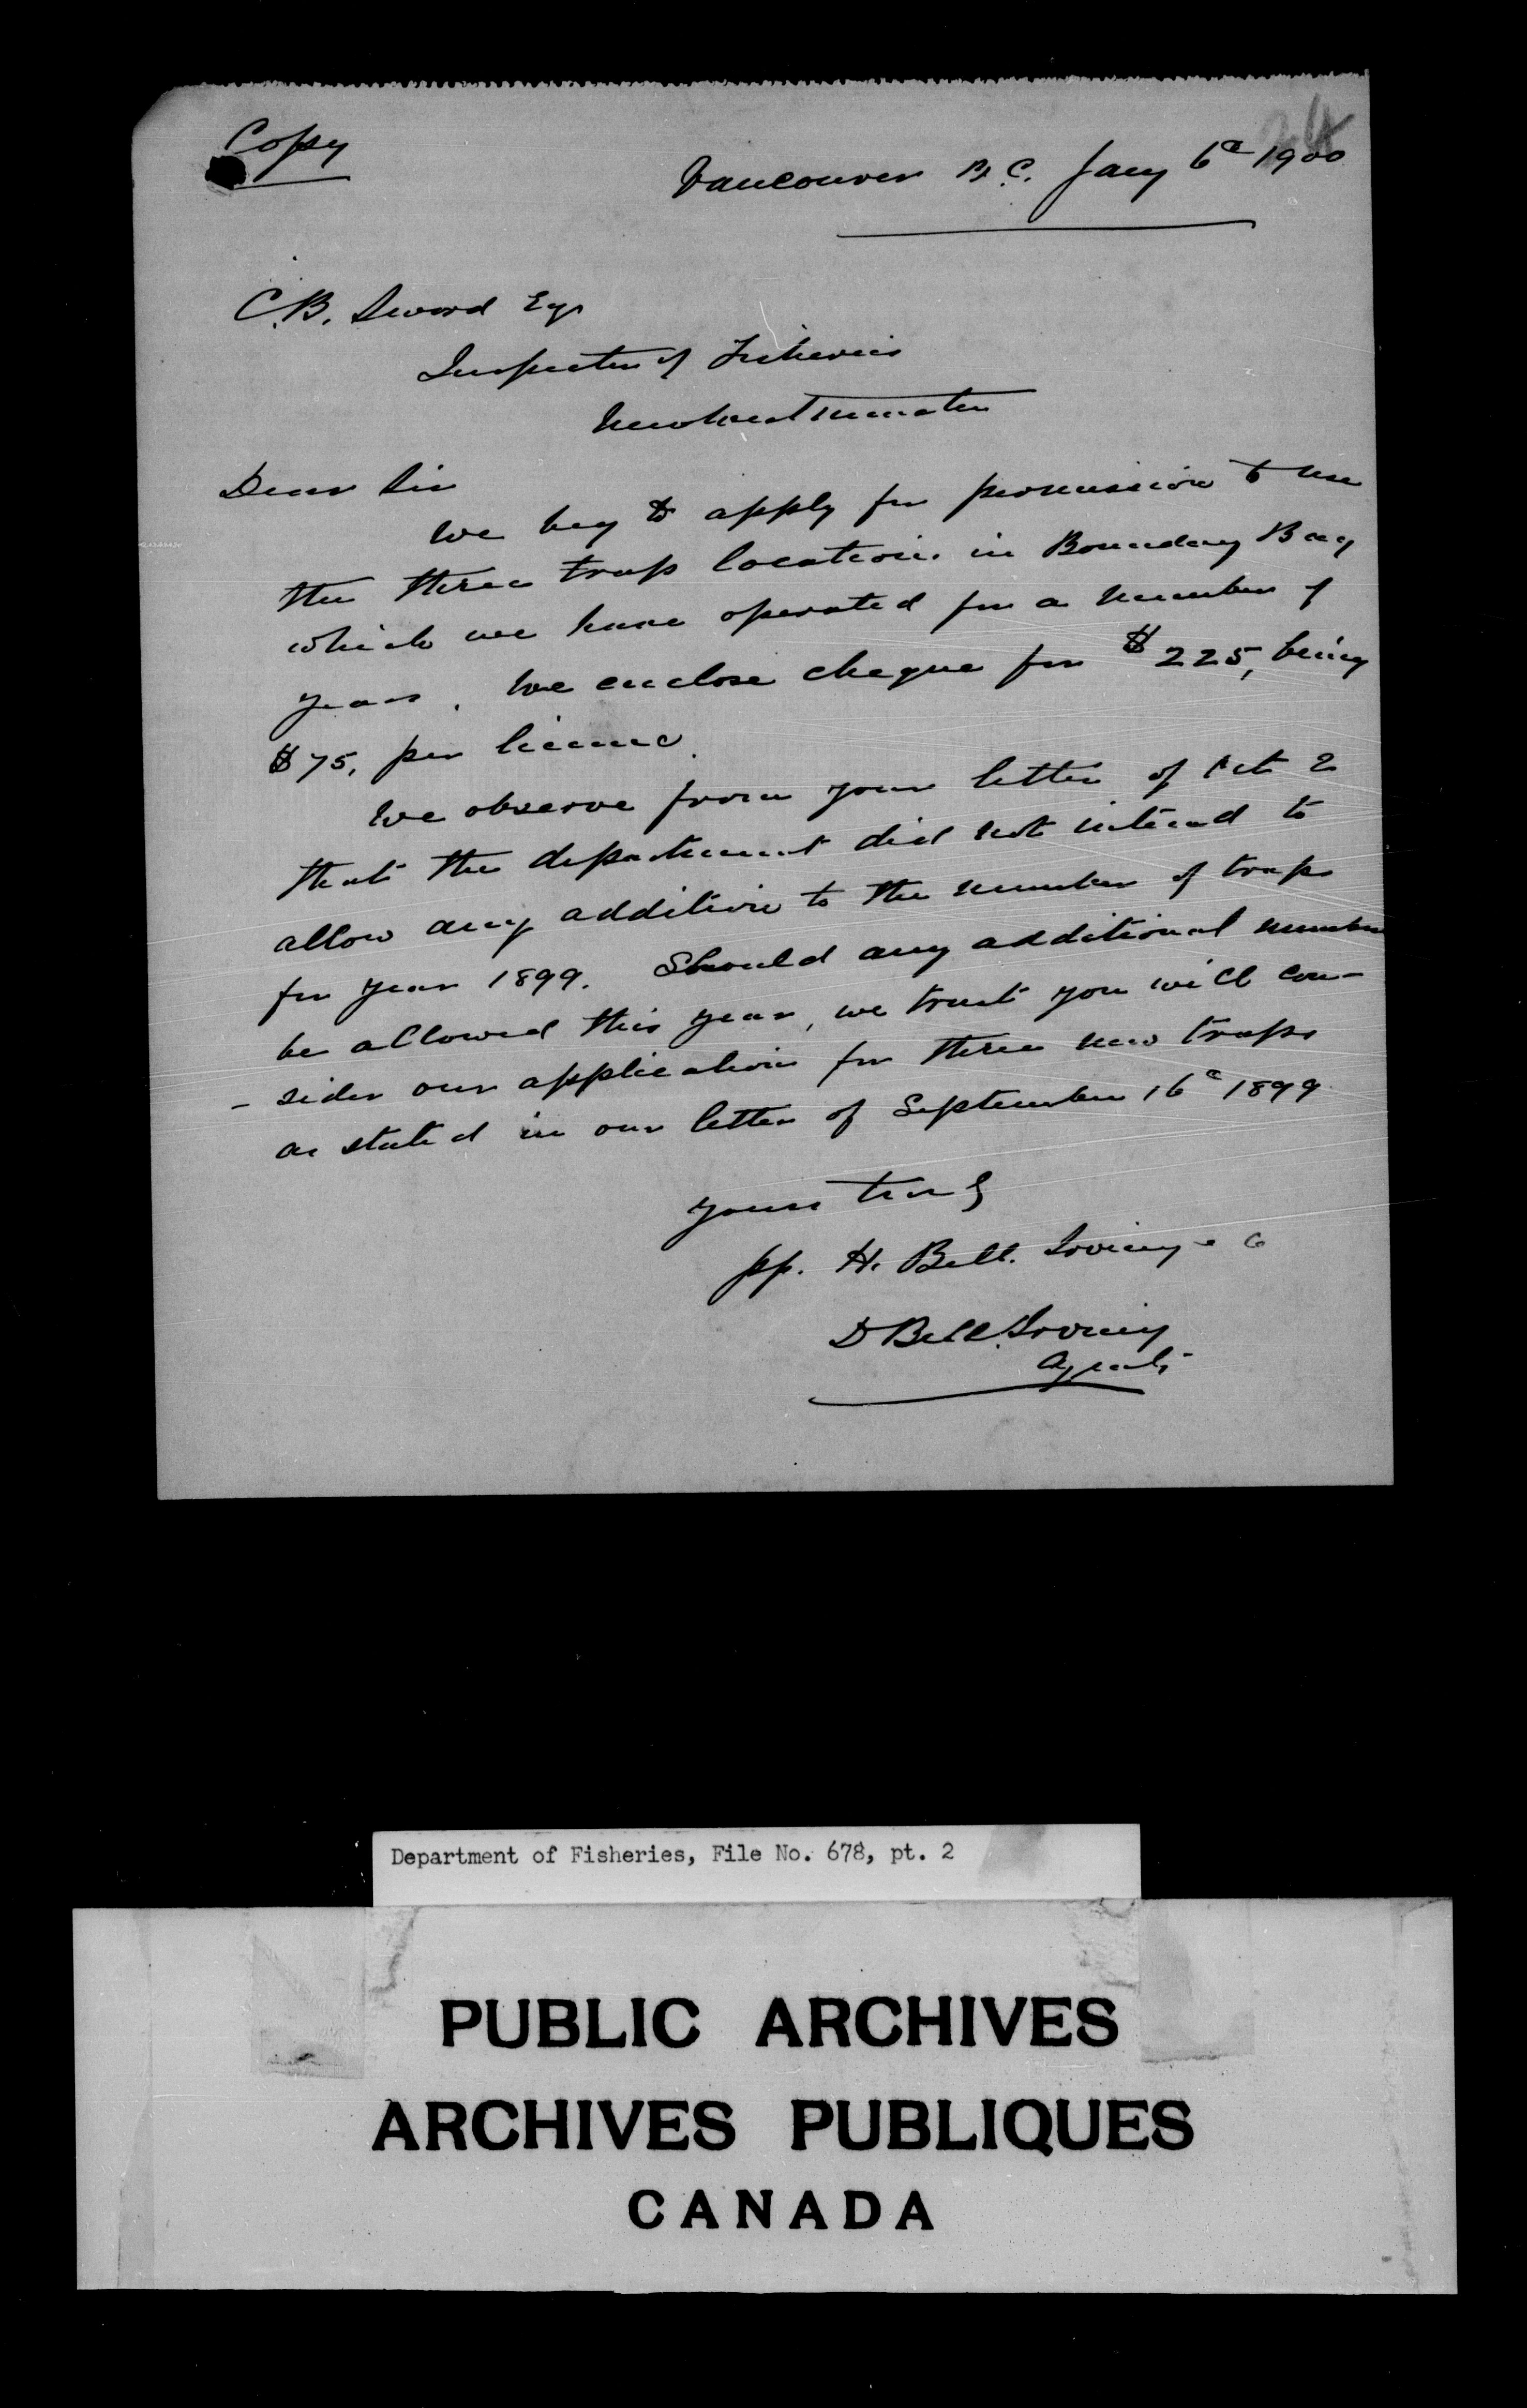 Copy
24
Vancouver B.C. Jany 6th 1900
C.B. Sword Esqr
Inspector of Fisheries
New Westminster
Dear Sir
We beg to apply for permission to use
the three trap locations in Boundary Bay
which we have operated for a number of
years. We enclose cheque for $225, being
$75, per license.
We observe from your letter of Oct 2
that the department did not intend to
allow any addition to the number of traps
for year 1899. Should any additional number
be allowed this year, we trust you will con-
- sider our application for three new traps
as stated in our letter of September 16th 1899
Yours truly
pp. H. Bell. Irving & Co
D Bell. Irving
Agents
Department of Fisheries, File No. 678, pt. 2
PUBLIC ARCHIVES
ARCHIVES PUBLIQUES
CANADA